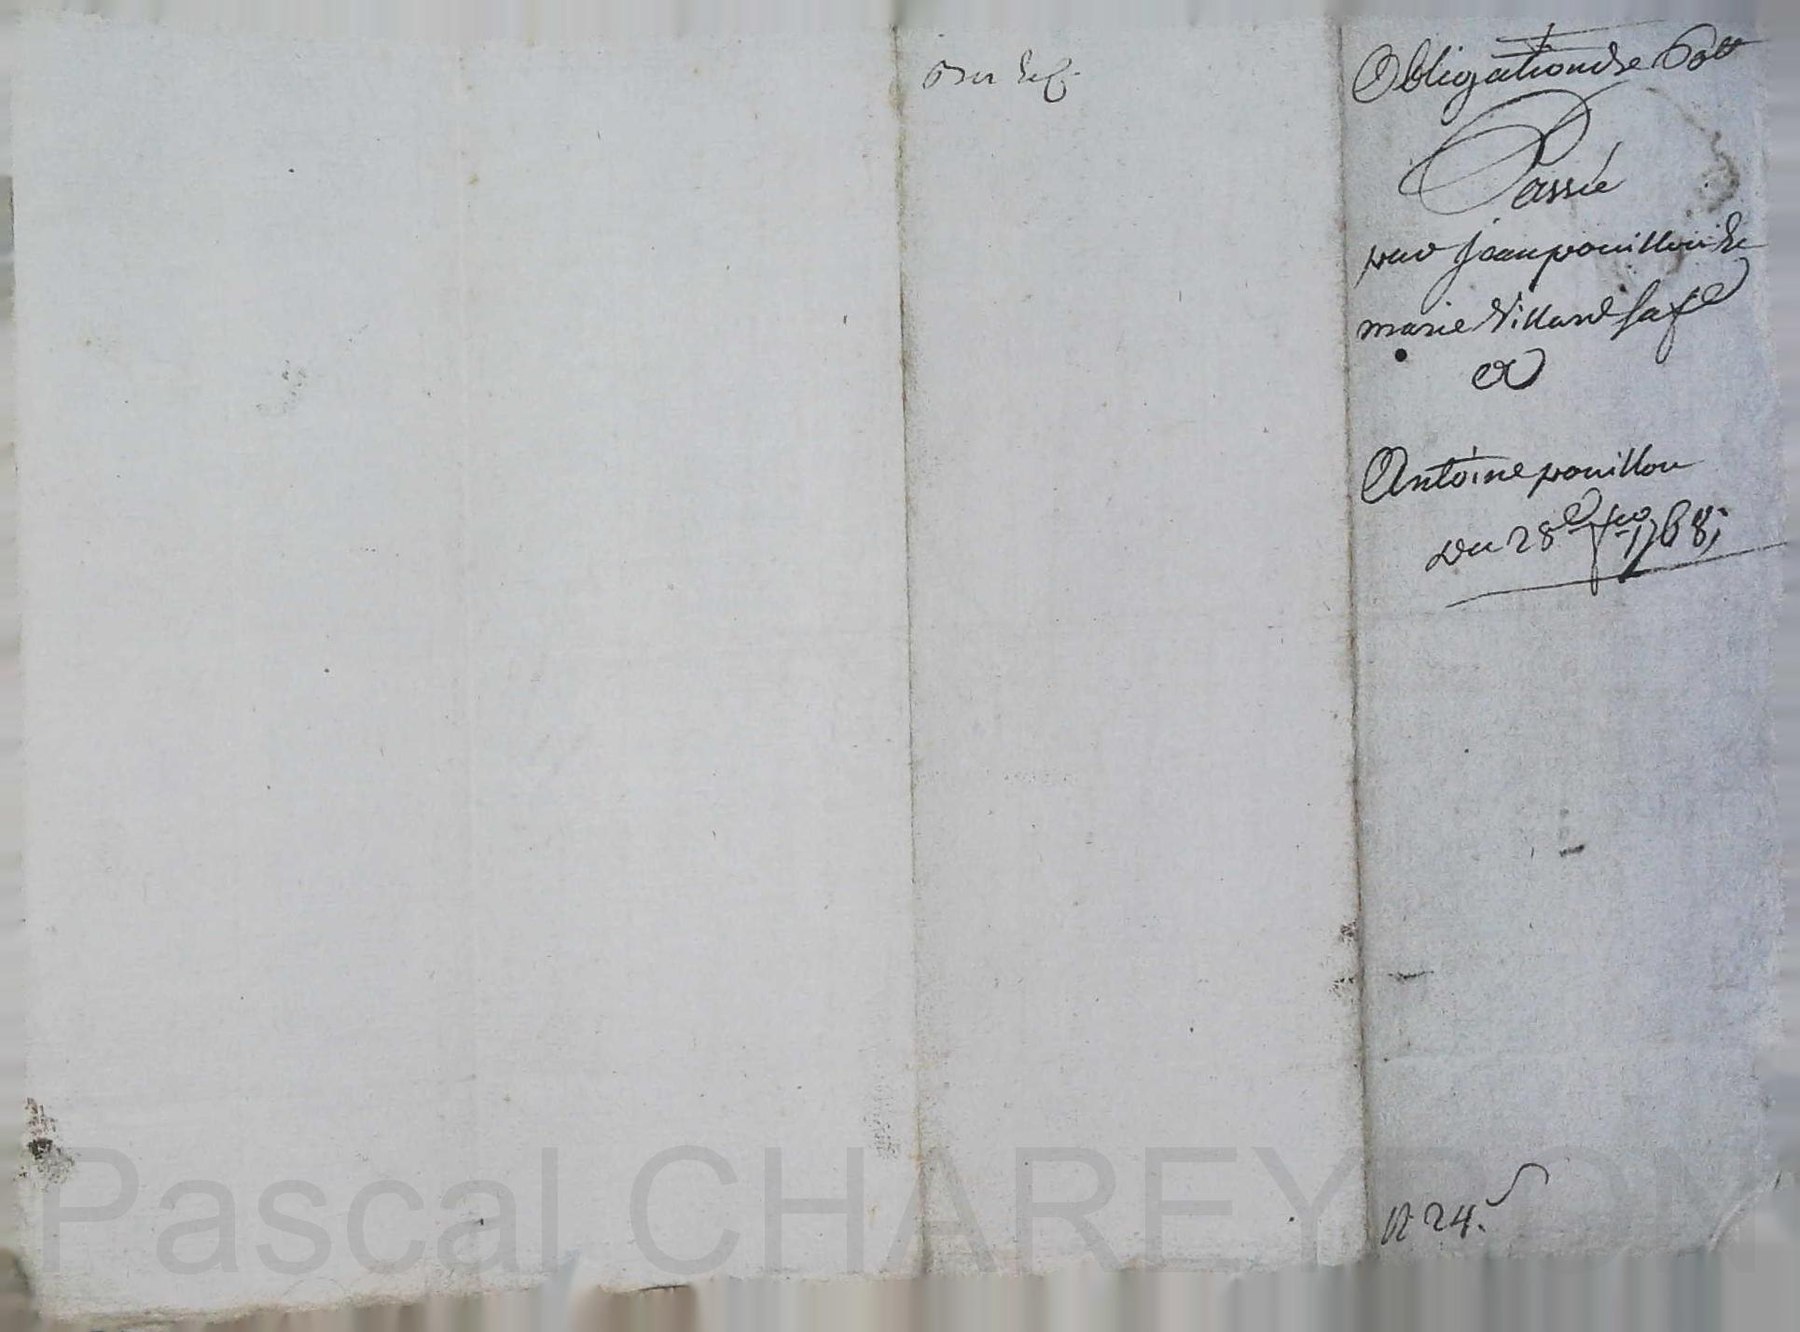 Obligation de 60 tt
Passée
par Jean pouillon &
marie Villard sa fe
a
Antoine pouillon
Du 28e 1768;
n 24.
Pascal CHAREYRON